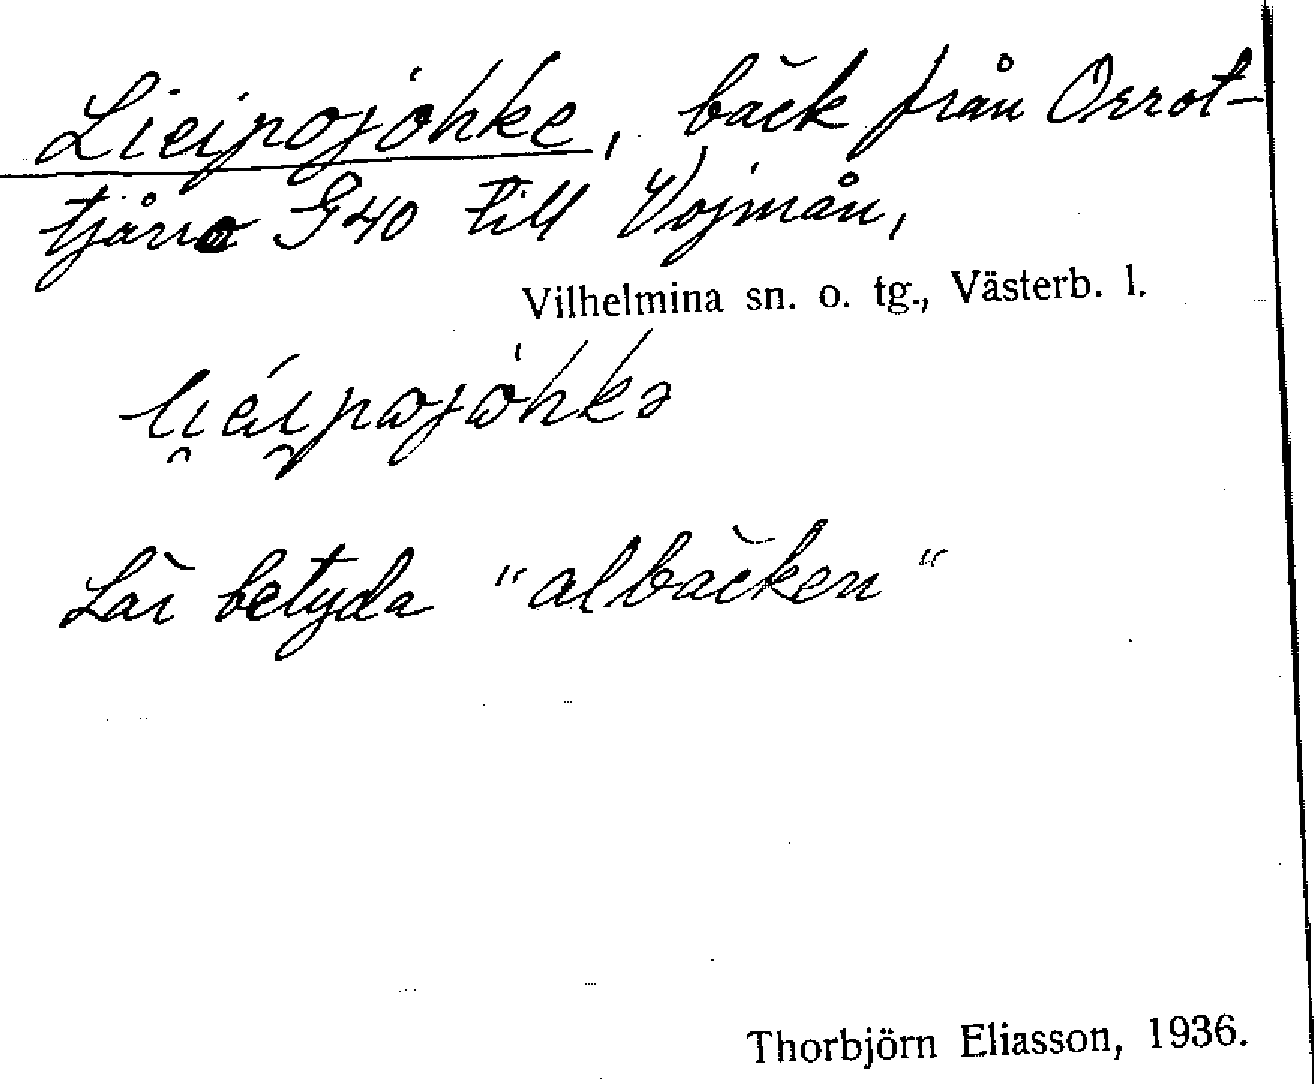 Lieipojohke, bäck från Orrot-
tjårro G40 till Vojmån,
Vilhelmina sn. o. tg., Västerb. l.
Lär betyda "albäcken"
Thorbjörn Eliasson, 1936.